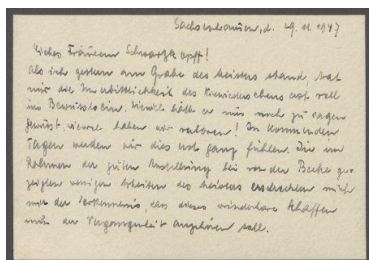 Sachsenhausen, d. 29.11.1947
Liebes Fräulein Schwarzkopff!
Als ich gestern am Grabe des Meisters stand, trat
mir die Unerbittlichkeit des Hinscheidens erst voll
ins Bewußtsein. Wieviel hätte er uns noch zu sagen
gewusst, wieviel haben wir verloren! In kommenden
Tagen werden wir dies erst ganz fühlen. Die im
Rahmen der Ausstellung bei von der Becke ge-
zeigten wenigen Arbeiten des Meisters
mich der Erkenntnis, das dieses wunderbare Schaffen
nun der Vergangenheit angehören soll.